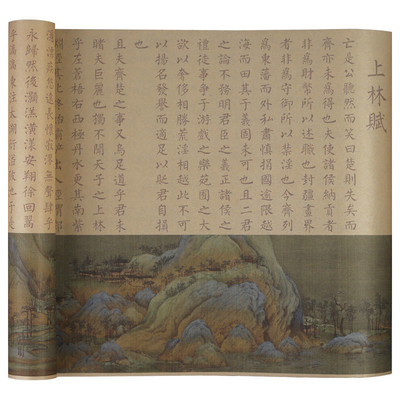 上林賦
亡是公聽然而笑曰楚則失矣而
齊亦未爲得也夫使諸侯納貢者
非爲財幣所以述職也封疆畫界
者非爲守御所以禁淫也今齊列
爲東藩而外私肅慎捐國逾限越
海而田其于義固未可也且二君
之論不務明君臣之義正諸侯之
禮徒事爭于游戲之樂苑囿之大
欲以奢侈相勝荒淫相越此不可
以揚名發譽而適足以貶君自損
也
且夫齊楚之事又烏足道乎君未
睹夫巨麗也獨不聞天子之上林
乎左蒼梧右西極丹水更其南紫
永歸然後灝溔潢漾安翔徐回翯